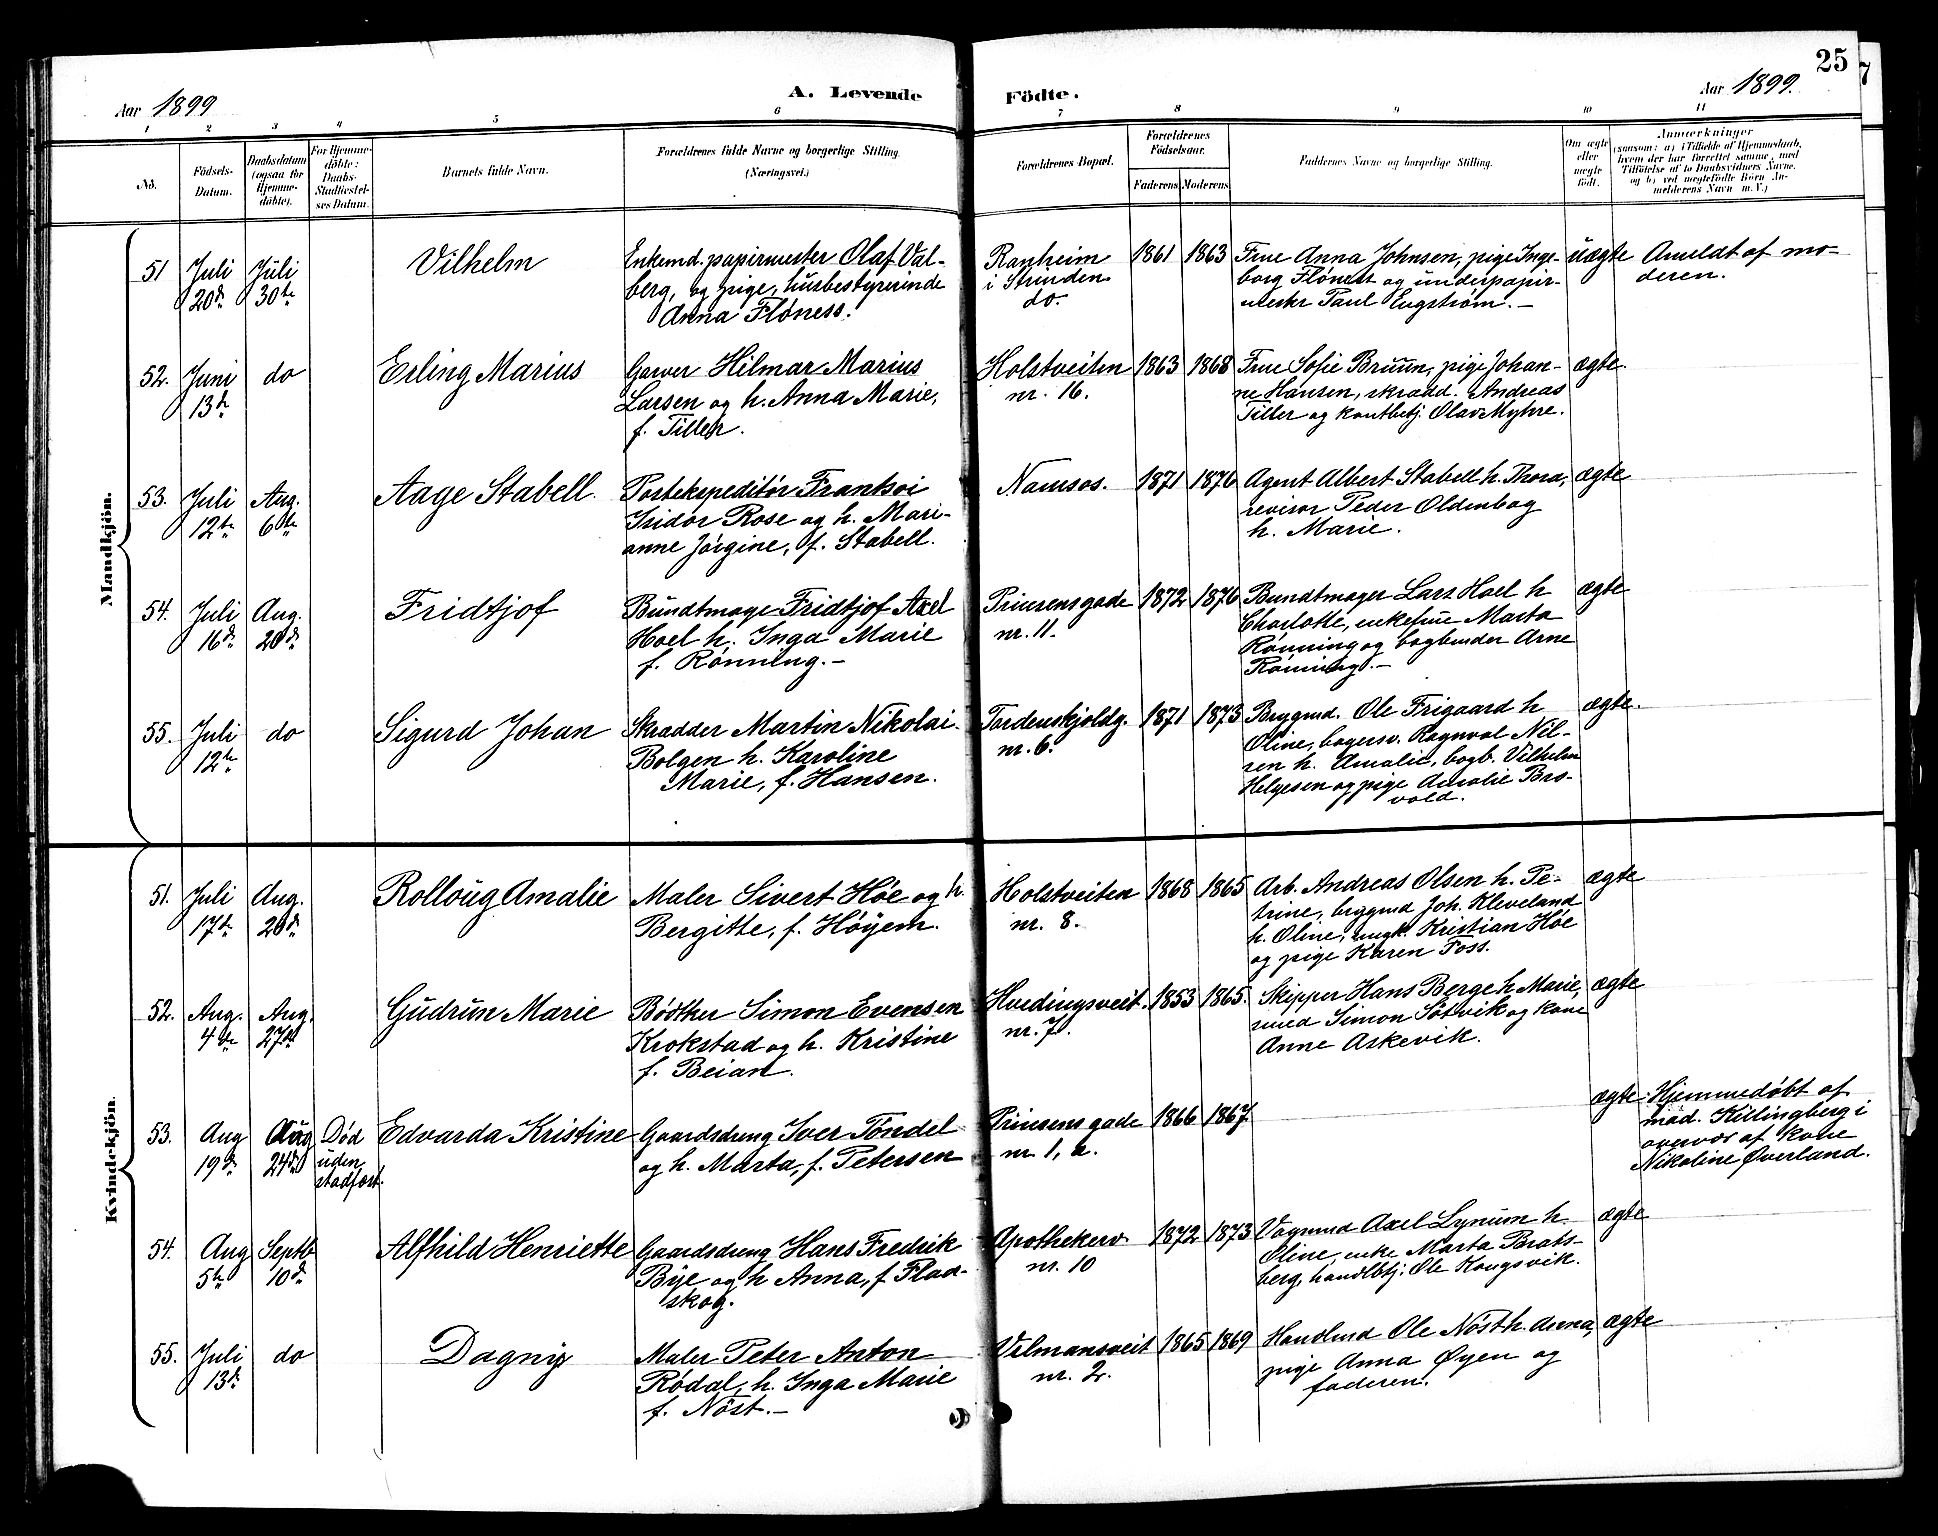 25
7
A. Levende Födte.
Aar 1899
Aar 1899.
1 2 3 4 5 6 7 8 9 10 11
No.
Födsels-
Datum.
Daabsdatum
(ogsaa for
Hjemme-
döbte).
For Hjemme-
döbte:
Daabs-
Stadfæstel-
ses Datum.
Barnets fulde Navn.
Forældrenes fulde Navne og borgerlige Stilling.
(Næringsvei.)
Forældrenes Bopæl.
Forældrenes
Födselsaar.
Faderens Moderens
Faddernes Navne og borgerlige Stilling.
Om ægte
eller
uægte
födt.
Anmærkninger
(saasom: a) i Tilfælde af Hjemmedaab,
hvem der har forrettet samme, med
Tilföielse af to Daabsvidners Navne.
og b) ved uægtefödte Börn An-
melderens Navn m. V.)
Mandkjön.
51
Juli
20de
Juli
30te
Vilhelm
Enkemd. papirmester Olaf Val-
berg, og pige, husbestyrerinde
Anna Fløness.
Ranheim
i Strinden
do.
1861 1863
Frue Anna Johnsen, pige Inge-
borg Fløness og underpapir-
mestr Paul Engstrøm. -
uægte
Anmeldt af mo-
deren.
52.
Juni
13de
do
Erling Marius
Garver Hilmar Marius
Larsen og h. Anna Marie,
f. Tiller.
Holstveiten
nr. 16.
1863 1868
Frue Sofie Bruun, pige Johan-
ne Hansen, skrædd. Andreas
Tiller og kontbetj. Olav Myhre.
ægte.
53.
Juli
12te
Aug.
6te
Aage Stabell.
Postekspeditör Frantsoi
Isidor Rose og h. Mari-
anne Jörgine, f. Stabell.
Namsos.
1871 1876
Agent Albert Stabell h. Thora,
revisor Peder Oldenbog
h. Marie.
ægte
54.
Juli
16de
Aug.
20de
Fridtjof
Bundtmage Fridtjof Axel
Hoel h. Inga Marie
f. Rönning. -
Prinsensgade
nr. 11.
1872 1876
Bundtmager Lars Hoel h
Charlotte, enkefrue Marta
Rønning og bogbinder Arne
Rønning. -
ægte
55.
Juli
12te
do
Sigurd Johan
Skrædder Martin Nikolai
Bolgen h. Karoline
Marie, f. Hansen.
Tordenskjoldg.
nr. 6.
1871 1873
Brygmd. Ole Frigaard h
Oline, bagersv. Ragnval Nil-
sen h. Amalie, bogb. Vilhelm
Helgesen og pige Amalie Bro-
vold.
ægte.
Kvindekjön.
51.
Juli
17de
Aug.
20de
Rolloug Amalie
Maler Sivert Höe og h.
Bergitte, f. Höyem.
Holstveiten
nr. 8.
1868 1865
Arb. Andreas Olsen h. Pe-
trine, brygmd Joh. Kleveland
h. Oline, ungk. Kristian Höe
og pige Karen Foss.
ægte
52.
Aug.
4de
Aug.
27de
Gudrun Marie
Bødker Simon Evensen
Krokstad og h. Kristine
f. Beian.
Hvedingsveit.
nr. 7.
1853 1865.
Skipper Hans Berge h Marie,
smed Simon Søtvik og kone
Anne Askevik.
ægte
53.
Aug
19de
Aug
24de
Död
uden
stadfæst.
Edvarda Kristine
Gaardsdreng Iver Töndel
og h. Marta, f. Petersen
Prinsensgade
nr. 1, a.
1866 1867
ægte
Hjemmedöbt af
jmd. Killingberg i
overvær af kone
Nikoline Øverland.
54.
Aug
5te
Septb
10de
Alfhild Henriette
Gaardsdreng Hans Fredrik
Bye og h Anna, f. Flad-
skog.
Apothekerv.
nr. 10
1872 1873
Vognmd Axel Lynum h.
Oline, enke Marta Brats-
berg, handlbtj. Ole Kongsvik.
ægte
55.
Juli
13de
do
Dagny
Maler Peter Anton
Rödal, h. Inga Marie
f. Nöst. -
Vilmansveit
nr. 2.
1865 1869
Handlmd Ole Nöst h. Anna,
pige Anna Øyen og
faderen.
ægte